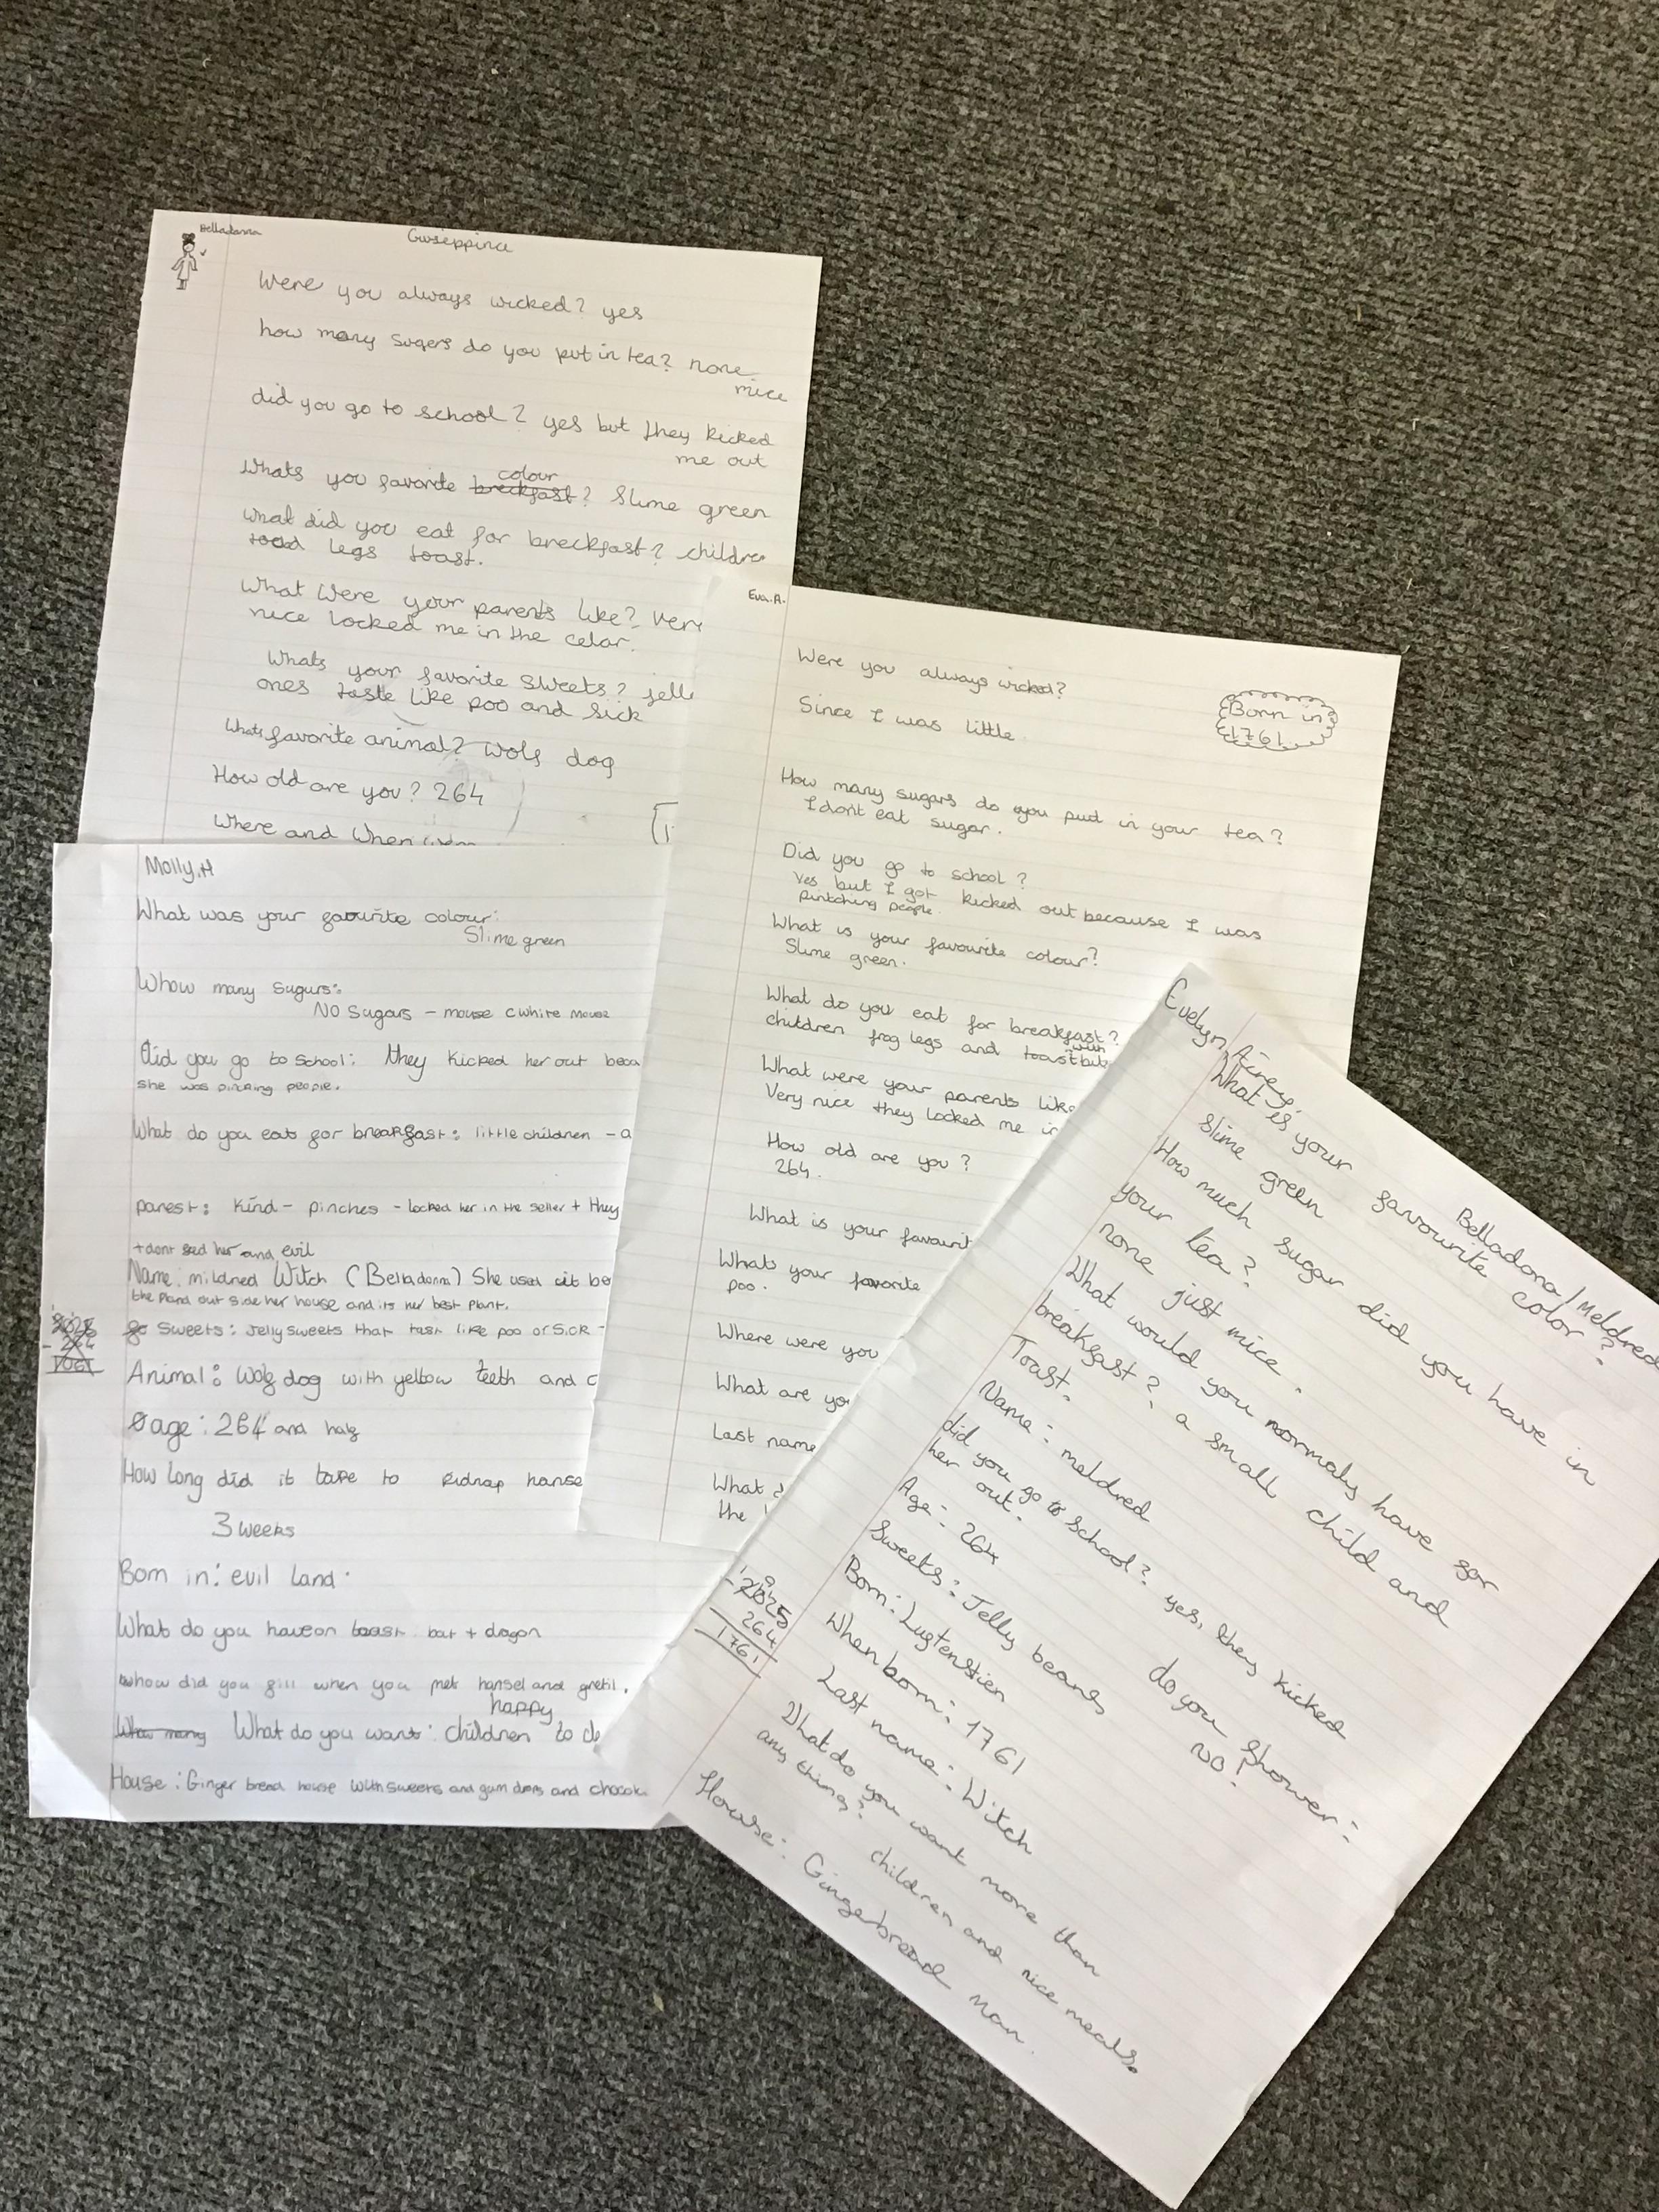 Belladonna
Guseppina
Were you always wicked? yes
how many sugers do you put in tea? none
mice
did you go to school? yes but they kicked
me out
Whats you favorite breckfast? Slime green
colour
what did you eat for breckfast? childre
toad legs toast.
What were your parents like? Very
nice locked me in the celar.
Whats your favorite sweets? jell
ones taste like poo and sick
Whats favorite animal? wolf dog
How old are you? 264
Where and When were
Eva.A.
Were you always wicked?
Since I was little
Born in
1761.
How many sugars do you put in your tea?
I don't eat sugar.
Did you go to school?
Yes but I got kicked out because I was
pintching people.
What is your favourite colour?
Slime green.
What do you eat for breakfast?
children frog legs and toast
with
What were your parents like
Very nice they locked me in
How old are you?
264.
What is your favourit
Whats your favorite
poo.
Where were you
What are yo
Last name
What
the
Molly.H
What was your favourite colour:
Slime green
Whow many sugurs:
NO Sugars - mouse cwhite mouse
Did you go to school: they kicked her out beca
she was pinching people.
What do you eat for breakfast: little children - a
parest: kind - pinches - locked her in the seller + they
+ dont fed her and evil
Name: mildred Witch (Belladonna) She used it be
the pland out side her house and its her best plant.
Sweets: Jelly sweets that tast like poo or sick -
2025
- 264
1761
Animal: Wolf dog with yellow teeth and c
age: 264 and half
How long did it take to kidnap hanse
3 weeks
Born in: evil land.
What do you haveon toast bat + dragon
whow did you fill when you met hansel and gretil.
happy
Whow many What do you want: children to
House: Ginger bread house with sweets and gum drops and chocok
Evelyn Airey.
Belladona/Meldred
What is your favourite color?
Slime green
How much sugar did you have in
your tea?
none just mice.
What would you normaly have for
breakfast? a small child and
Toast.
Name: meldred
did you go to school? yes, they kicked
her out.
Age: 264
do you shower:
NO.
Sweets: Jelly beans
Born: Lugtenstien
2025
- 264
1761
When born: 1761
Last name: Witch
What do you want more than
any thing? children and nice meals.
House: Gingerbread man.